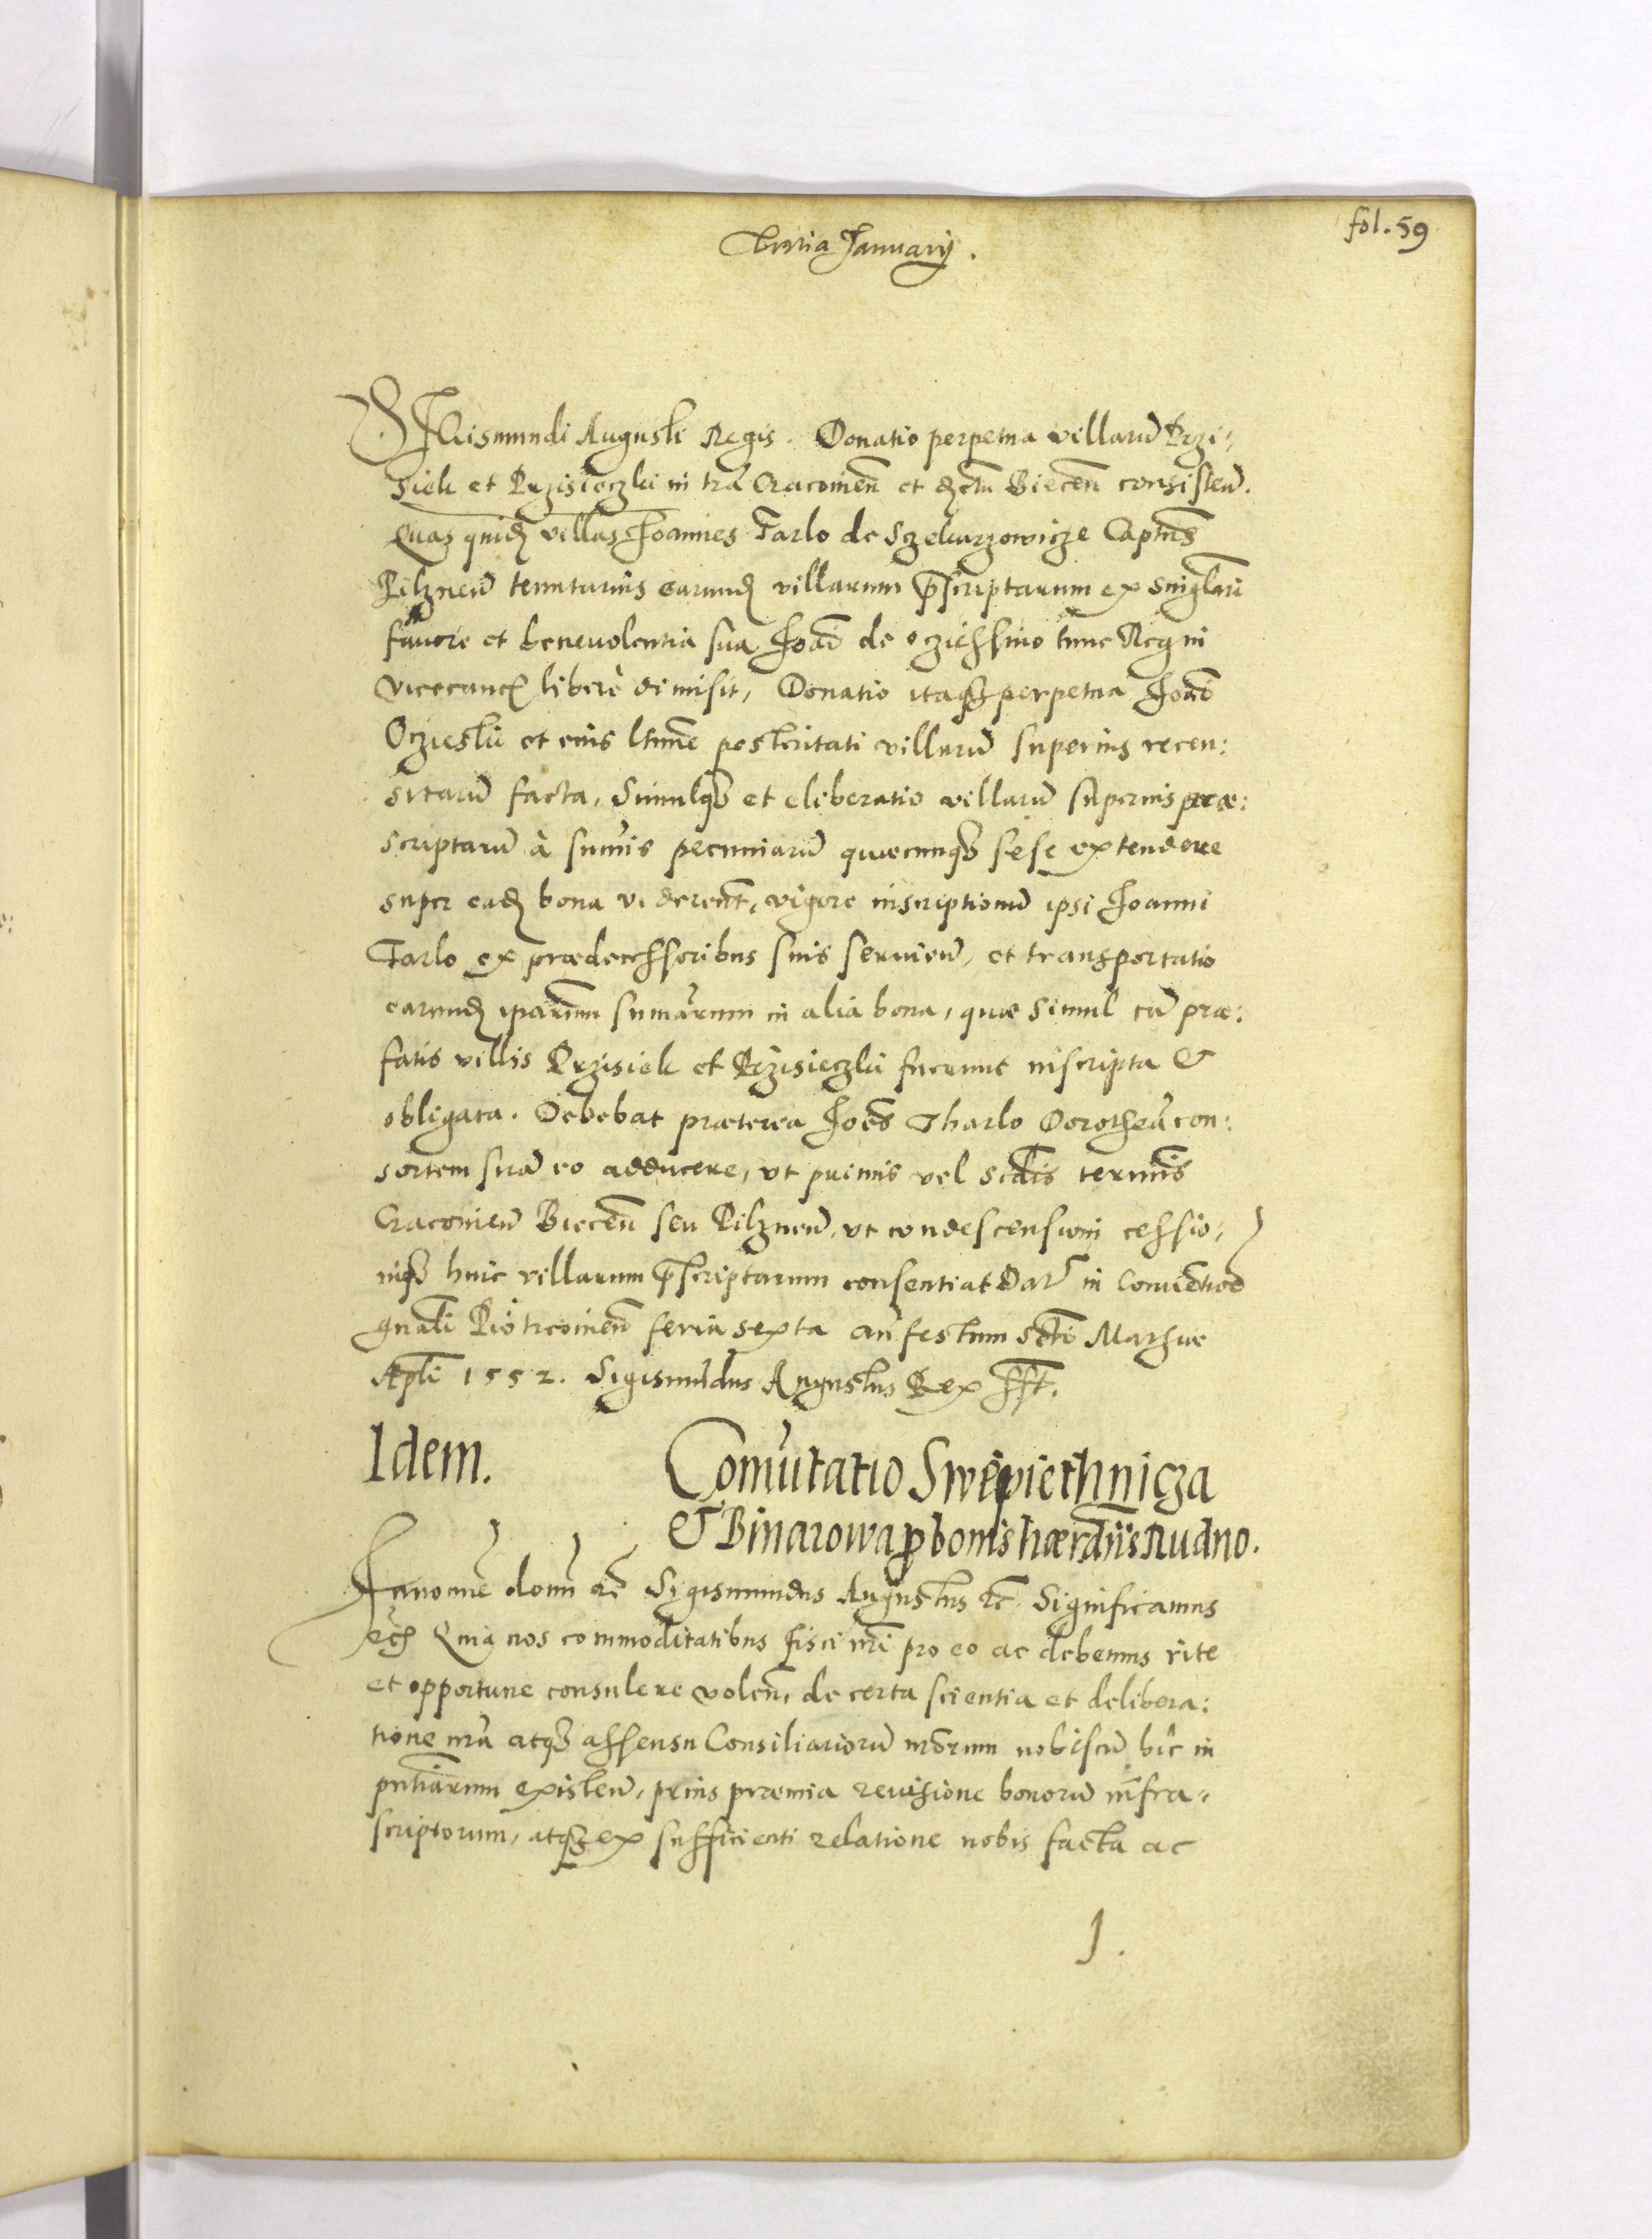 fol. 59
Tertia Januarij.
SIGismundi Augusti Regis. Donatio perpetua villarū Przi,
siek et Przisieczki in tra Cracovien̄ et dctu Biecen̄ consisten̄.
Quas quidē villas Joannes Tarlo de Sczekarzowicze Captus
Pilznen̄ tenutarius earundē villarum pscriptarum ex singlari
fauore et beneuolentia sua Joāi de oczieſſino tunc Regni
vicecanc̄ libere dimisit, Donatio itaq̄ perpetua Joāi
Oczieski et eius ltimē posteritati villarū superius recen:
sitarū facta, Simulq̄ et eliberatio villarū superius prae:
scriptarū à sum̄is pecuniarū quaecunq̄ sese extendere
super eadē bona viderent̄, vigore inscriptionū ipsi Joanni
Tarlo ex praedeceſſoribus suis seruien̄, et transportatio
earundē iparum sum̄arum in alia bona, quae simul cū prae:
fatis villis Przisiek et Przisieczki fuerunt inscripta &
obligata. Debebat praeterea Joēs Tharlo Dorotheā con:
sortem suā eo adducere, vt primis vel scdis terminis
Cracovien̄ Biecen̄ seu Pilznen̄, vt condescensioni ceſſio,
niq̄ huic villarum pscriptarum consentiat Dat̄ in Conuētioē
gn̄ali Piotrcovien̄ feria sexta an̄ festum Scti Mathiae
Apli 1552. Sigismūdus Augustus Rex ſſt.
Idem. Com̄utatio Swepiethnicza
& Binarowa p bonis haerdriis Rudno.
In nomē domī etc Sigismundus Augustus etc Significamus
etc Quia nos commoditatibus fisci nri pro eo ac debemus rite
et opportune consulere volen̄, de certa scientia et delibera:
tione nra atq̄ aſſensu Consiliariorū nrorum nobiscū hic in
pntiarum existen̄, prius praemia reuisione bonorū infra,
scriptorum, atq̄ ex sufficienti relatione nobis facta ac
J.